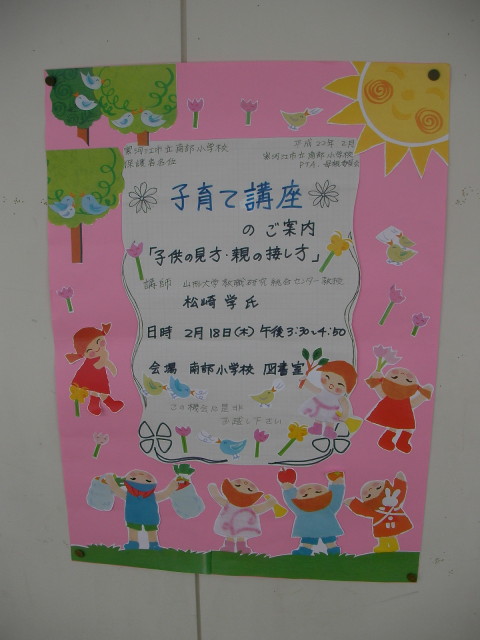 平成22年2月
寒河江市立南部小学校
保護者各位
寒河江市立南部小学校
PTA 母親委員会
子育て講座
のご案内
「子供の見方・親の接し方」
講師 山形大学教職研究総合センター教授
松﨑学氏
日時 2月18日(木)午後3:30~4:50
会場 南部小学校 図書室
この機会に是非
お越し下さい